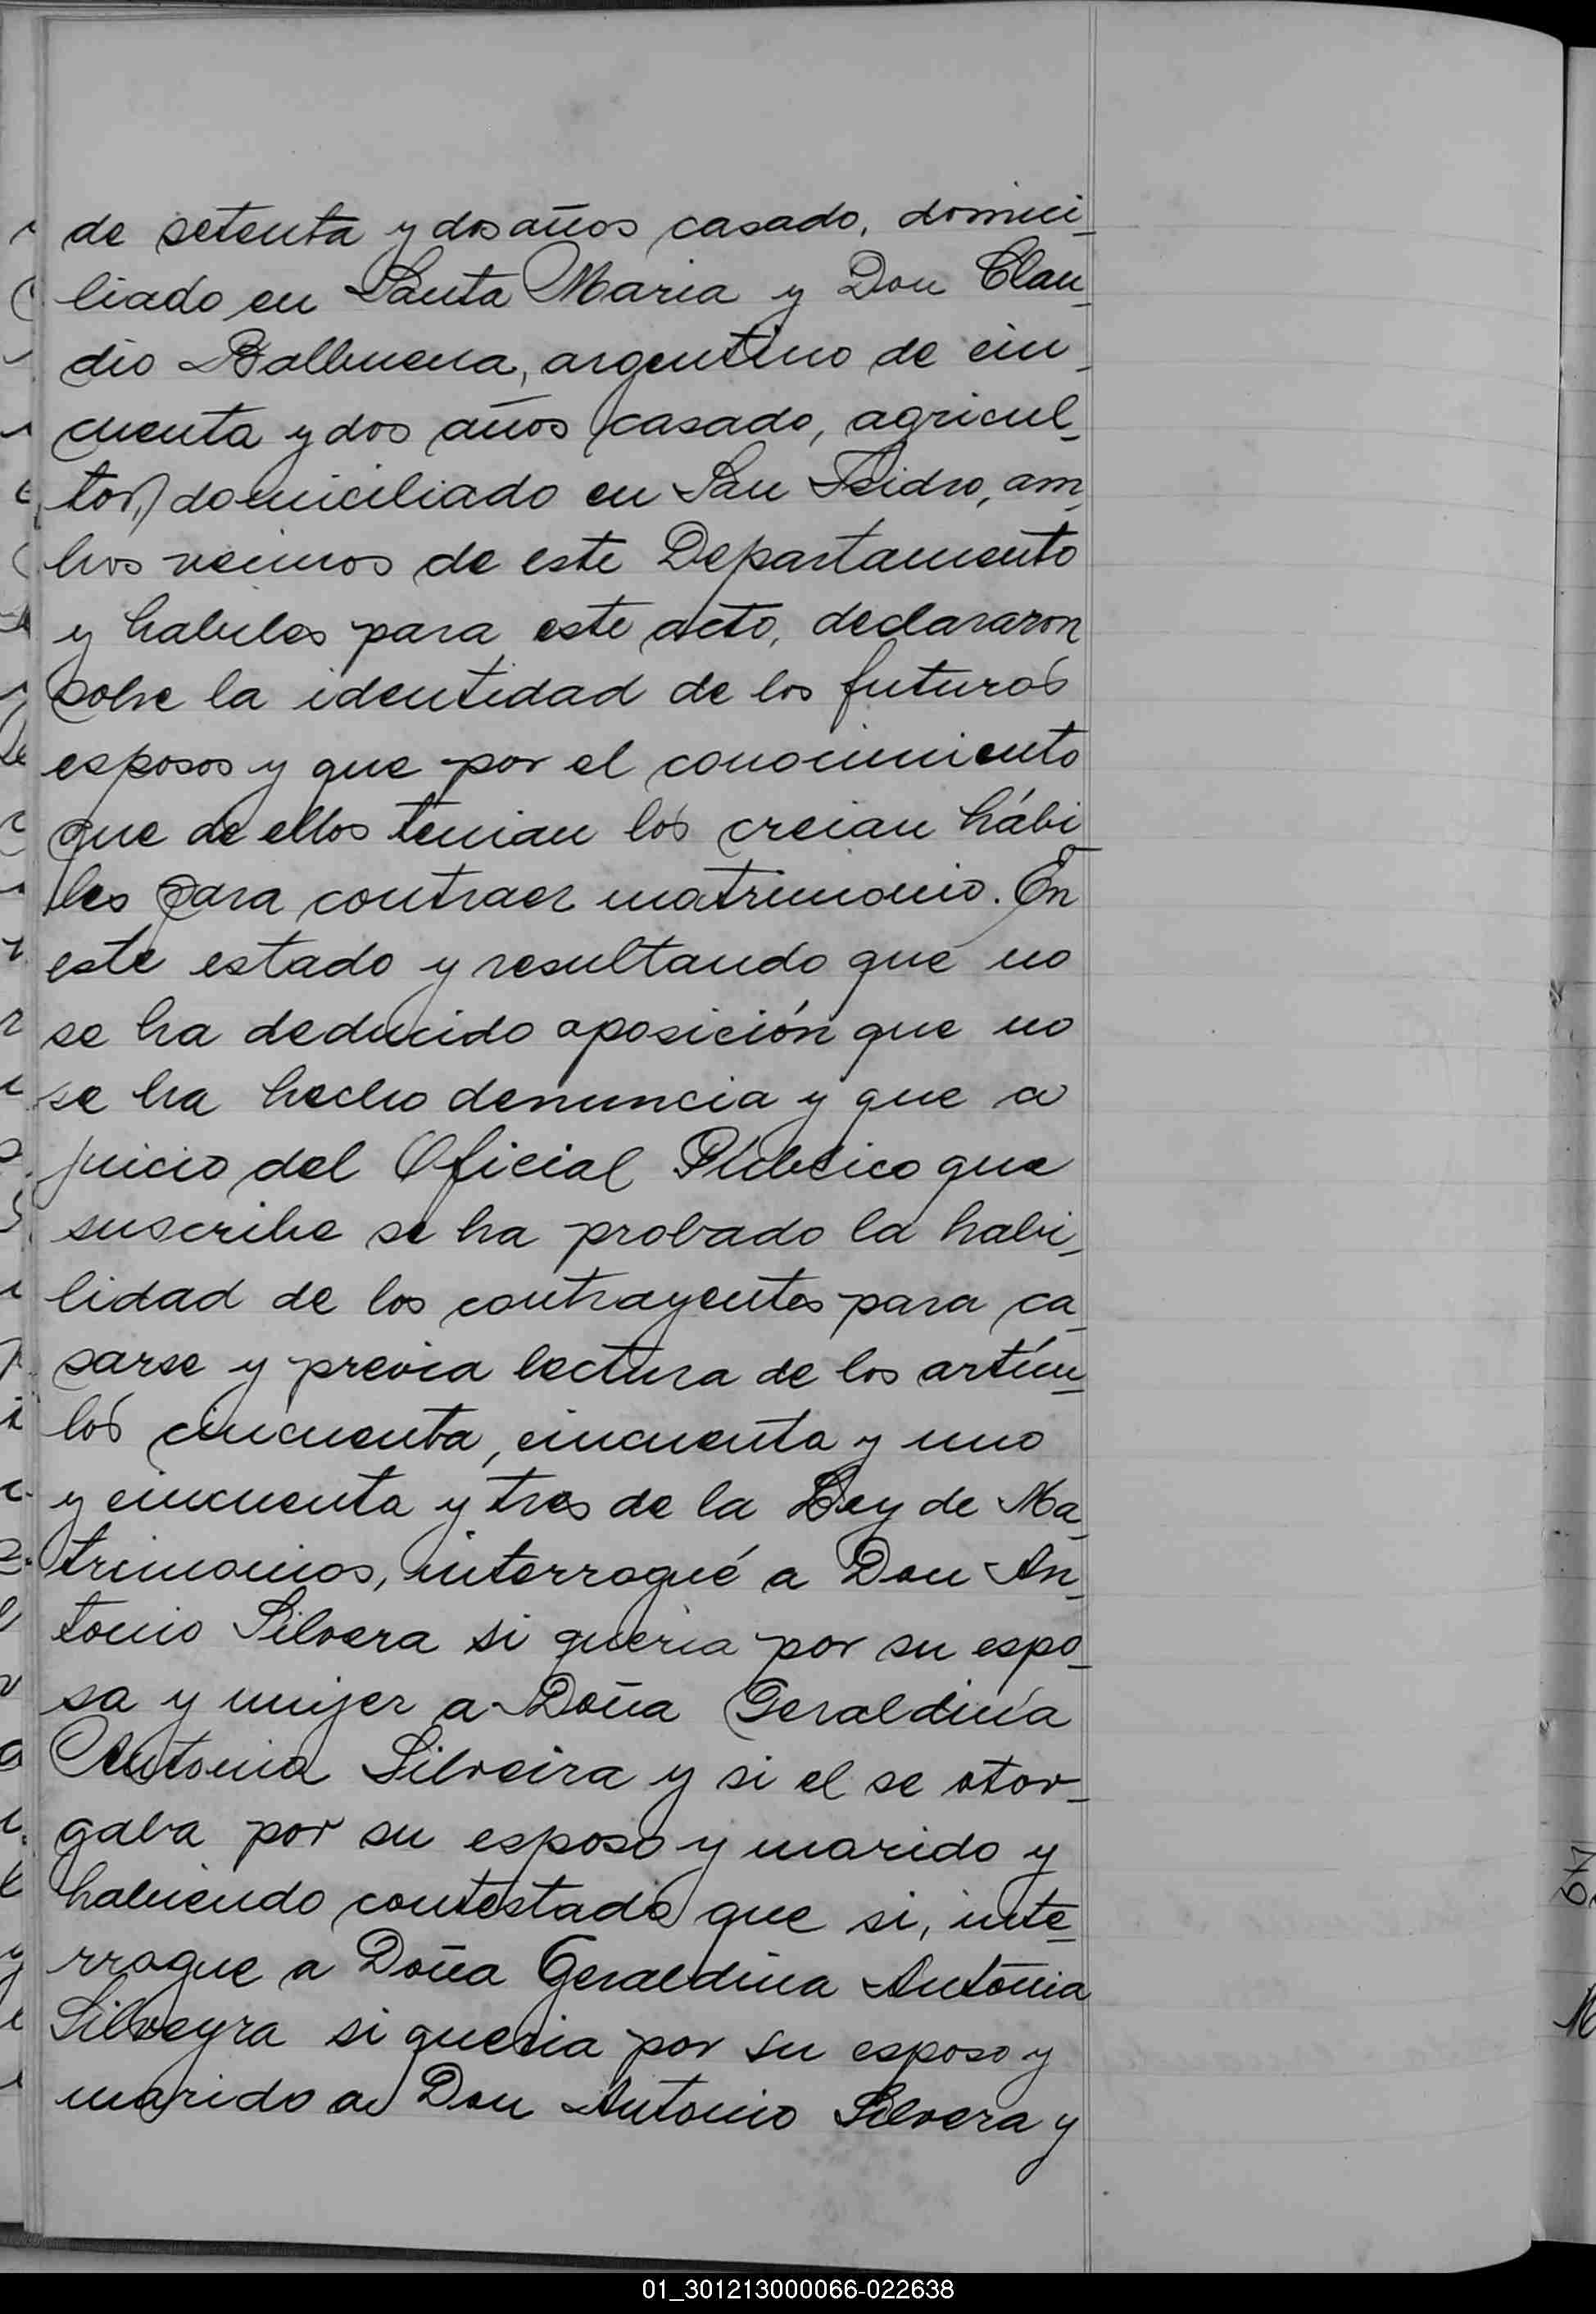 de setenta y dos años casado, domici-
liado en Santa Maria y Don Clau-
dio Balbuena, argentino de cin-
cuenta y dos años casado, agricul-
tor, domiciliado en San Isidro, am-
bos vecinos de este Departamento
y habiles para este acto, declararon
sobre la identidad de los futuros
esposos y que por el conocimiento
que de ellos tenian los creian hábi-
les para contraer matrimonio. En
este estado y resultando que no
se ha deducido oposición que no
se ha hecho denuncia y que a
juicio del Oficial Público que
suscribe se ha probado la habi-
lidad de los contrayentes para ca-
sarse y previa lectura de los artícu-
los cincuenta, cincuenta y uno
y cincuenta y tres de la Ley de Ma-
trimonios, interrogué a Don An-
tonio Silvera si queria por su espo-
sa y mujer a Doña Geraldina
Antonia Silveira y si el se otor-
gaba por su esposo y marido y
habiendo contestado que si, inte-
rrogue a Doña Geraldina Antonia
Silveyra si queria por su esposo y
marido a Don Antonio Silvera y
01_301213000066-022638